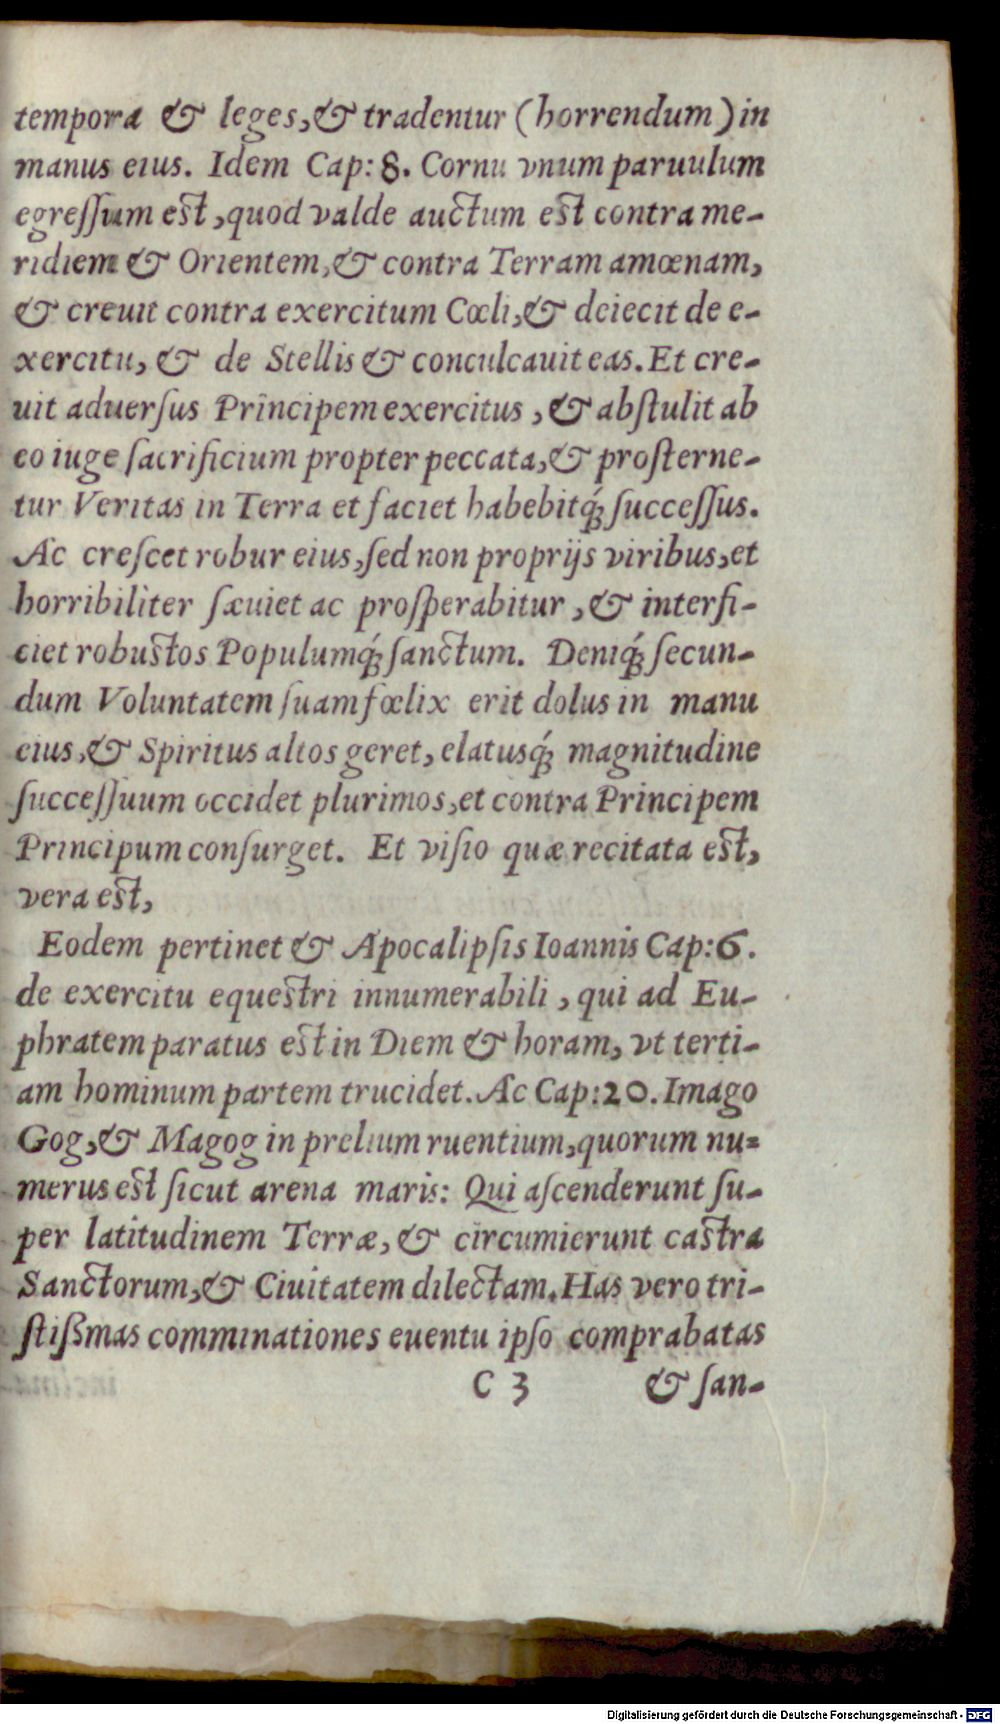 tempora & leges, & tradentur (horrendum) in
manus eius. Idem Cap: 8. Cornu vnum paruulum
egreſſum eſt, quod valde auctum eſt contra me-
ridiem & Orientem, & contra Terram amœnam,
& creuit contra exercitum Cœli, & deiecit de e-
xercitu, & de Stellis & conculcauit eas. Et cre-
uit aduerſus Principem exercitus, & abſtulit ab
eo iuge ſacrificium propter peccata, & proſterne-
tur Veritas in Terra et faciet habebitq́; ſucceſſus.
Ac creſcet robur eius, ſed non proprijs viribus, et
horribiliter ſæuiet ac proſperabitur, & interfi-
ciet robuſtos Populumq́; ſanctum. Deniq́; ſecun-
dum Voluntatem ſuam fœlix erit dolus in manu
eius, & Spiritus altos geret, elatusq́; magnitudine
ſucceſſuum occidet plurimos, et contra Principem
Principum conſurget. Et viſio quæ recitata eſt,
vera eſt,
Eodem pertinet & Apocalipſis Ioannis Cap: 6.
de exercitu equeſtri innumerabili, qui ad Eu-
phratem paratus eſt in Diem & horam, vt terti-
am hominum partem trucidet. Ac Cap: 20. Imago
Gog, & Magog in prelium ruentium, quorum nu-
merus eſt ſicut arena maris: Qui aſcenderunt ſu-
per latitudinem Terræ, & circumierunt caſtra
Sanctorum, & Ciuitatem dilectam. Has vero tri-
ſtißmas comminationes euentu ipſo comprabatas
C 3 & ſan-
Digitalisierung gefördert durch die Deutsche Forschungsgemeinschaft - DFG